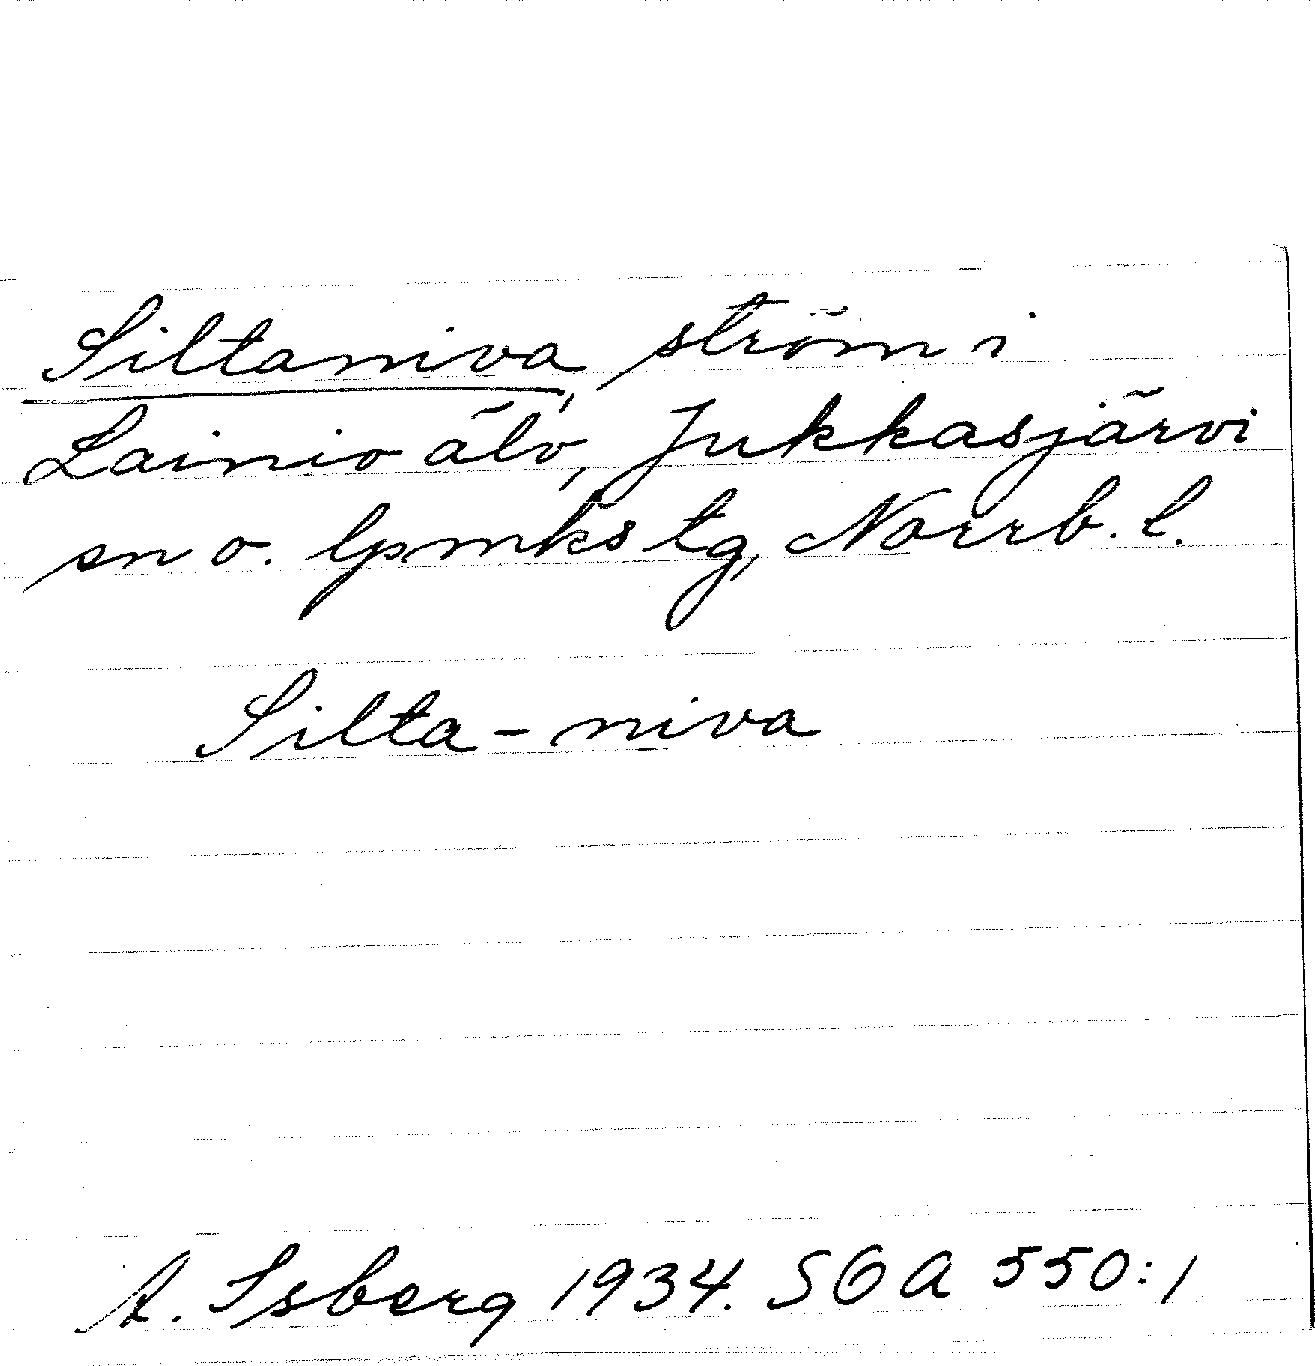 Siltaniva, ström i
Lainio älv, Jukkasjärvi
sn o. lpmks tg, Norrb. l.
Silta-niva
A. Isberg 1934. SOA 550:1